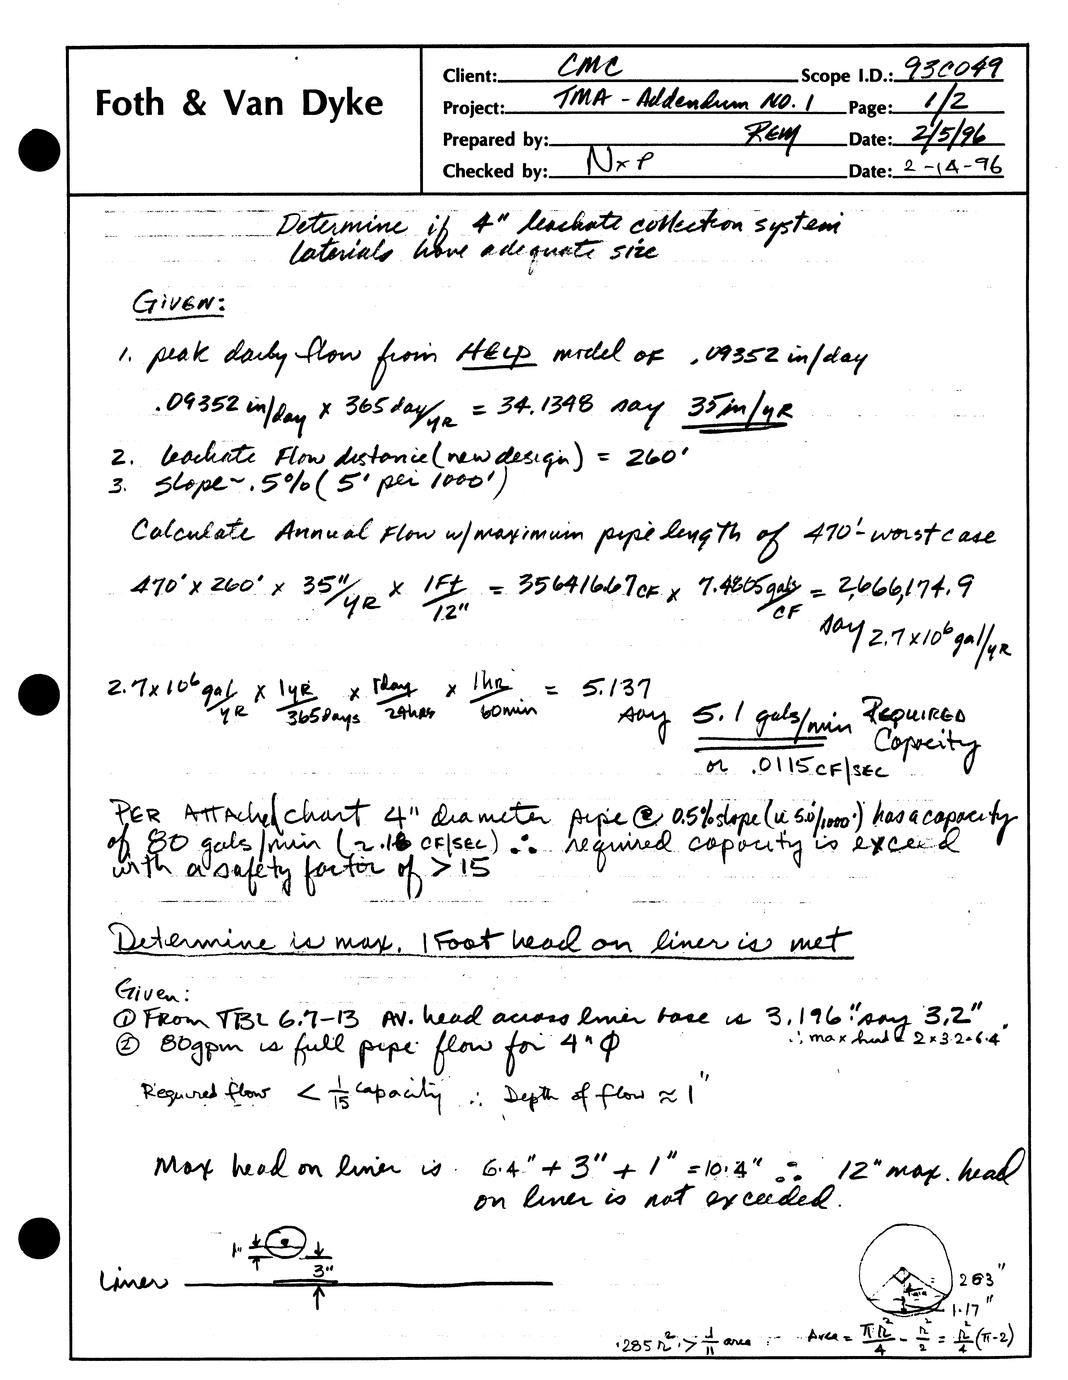 Foth & Van Dyke
Client: CMC Scope I.D.: 93C049
Project: TMA - Addendum NO. 1 Page: 1/2
Prepared by: REM Date: 2/5/96
Checked by: NxP Date: 2-14-96
Determine if 4" leachate collection system
laterials have adequate size
GIVEN:
1. peak daily flow from HELP model of .09352 in/day
.09352 in/day × 365 day/YR = 34.1348 say 35 in/YR
2. leachate Flow distance (new design) = 260'
3. Slope ~ .5% (5' per 1000')
Calculate Annual Flow w/maximum pipe length of 470' - worst case
470' × 260' × 35"/YR × 1Ft/12" = 356416.67 CF × 7.4805 gals/CF = 2,666,174.9
say 2.7 × 10⁶ gal/YR
2.7 × 10⁶ gal/YR × 1yR/365 days × 1day/24hrs × 1hr/60min = 5.137
say 5.1 gals/min REQUIRED
Capacity
or .0115 CF/SEC
PER Attached chart 4" diameter pipe @ 0.5% slope (ie 5.0'/1000') has a capacity
of 80 gals/min (~.18 CF/SEC) ∴ required capacity is exceed
with a safety factor of > 15
Determine is max. 1 Foot head on liner is met
Given:
① From TBL 6.7-13 AV. head across liner base is 3.196" say 3.2"
∴ max head = 2 × 3.2 = 6.4"
② 80gpm is full pipe flow for 4" Φ
Required flow < 1/15 capacity ∴ Depth of flow ≈ 1"
Max head on liner is 6.4" + 3" + 1" = 10.4" ∴ 12" max. head
on liner is not exceeded.
1"
3"
Liner
283"
1.17"
.285 r² > 1/11 area ∴ Area = πr²/4 - r²/2 = r²/4 (π-2)